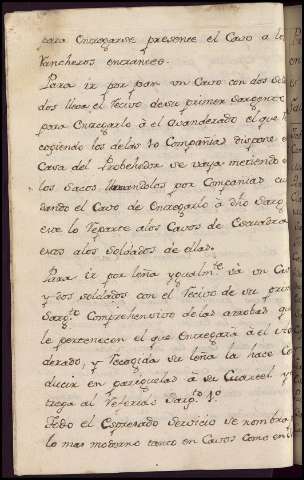 para Entregarse presente el Cavo a los
Rancheros entrantes.
Para ir por pan un Cavo con dos Sol
dos lleva el Recivo de su primer Sargento
para Entregarlo à el Avanderado el que Re
cogiendo los delas 10 Companias dispone e
Casa del Probehedor se vaya metiendo e
los Sacos llamandolos por Companias cu
dando el Cavo de Entregarlo à dho Sarg
este lo Reparte alos Cavos de Esquadra
estos alos Soldados de ellas.
Para ir por leña ygualm.te vá un Cav
y dos soldados con el Recivo de su prim
Sarg.to Comprehensivo de las arrobas q
le pertenecen el que Entregara à el
derado, y Recogida su leña la hace Co
ducir en parriguelas à su Cuartel y
trega al Referido Sarg.to 1º
Todo el Espresado Servicio se nombra
lo mas moderno tanto en Cavos como en